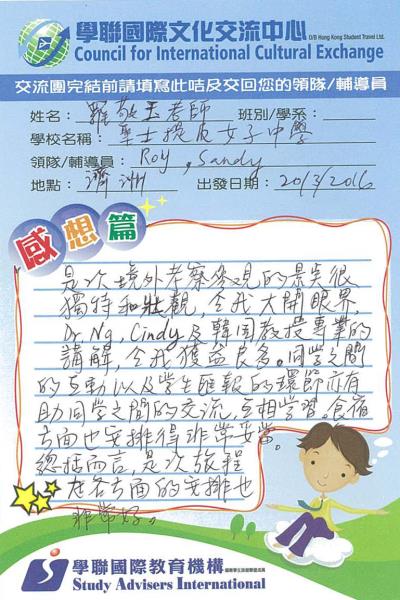 學聯國際文化交流中心
D/B Hong Kong Student Travel Ltd.
Council for International Cultural Exchange
交流團完結前請填寫此咭及交回您的領隊/輔導員
姓名：羅敬玉老師 班別/學系：
學校名稱：畢士提反女子中學
領隊/輔導員：Roy, Sandy
地點：濟洲 出發日期：20/3/2016
感想篇
是次境外考察參觀的景點很
獨特和壯觀，令我大開眼界，
Dr Ng, Cindy及韓国教授專業的
講解，令我獲益良多。同学之間
的互動以及学生匯報的環節亦有
助同学之間的交流，互相学習。食宿
方面也安排得非常妥當。
總括而言，是次旅程
在各方面的安排也
非常好。
學聯國際教育機構
Study Advisers International